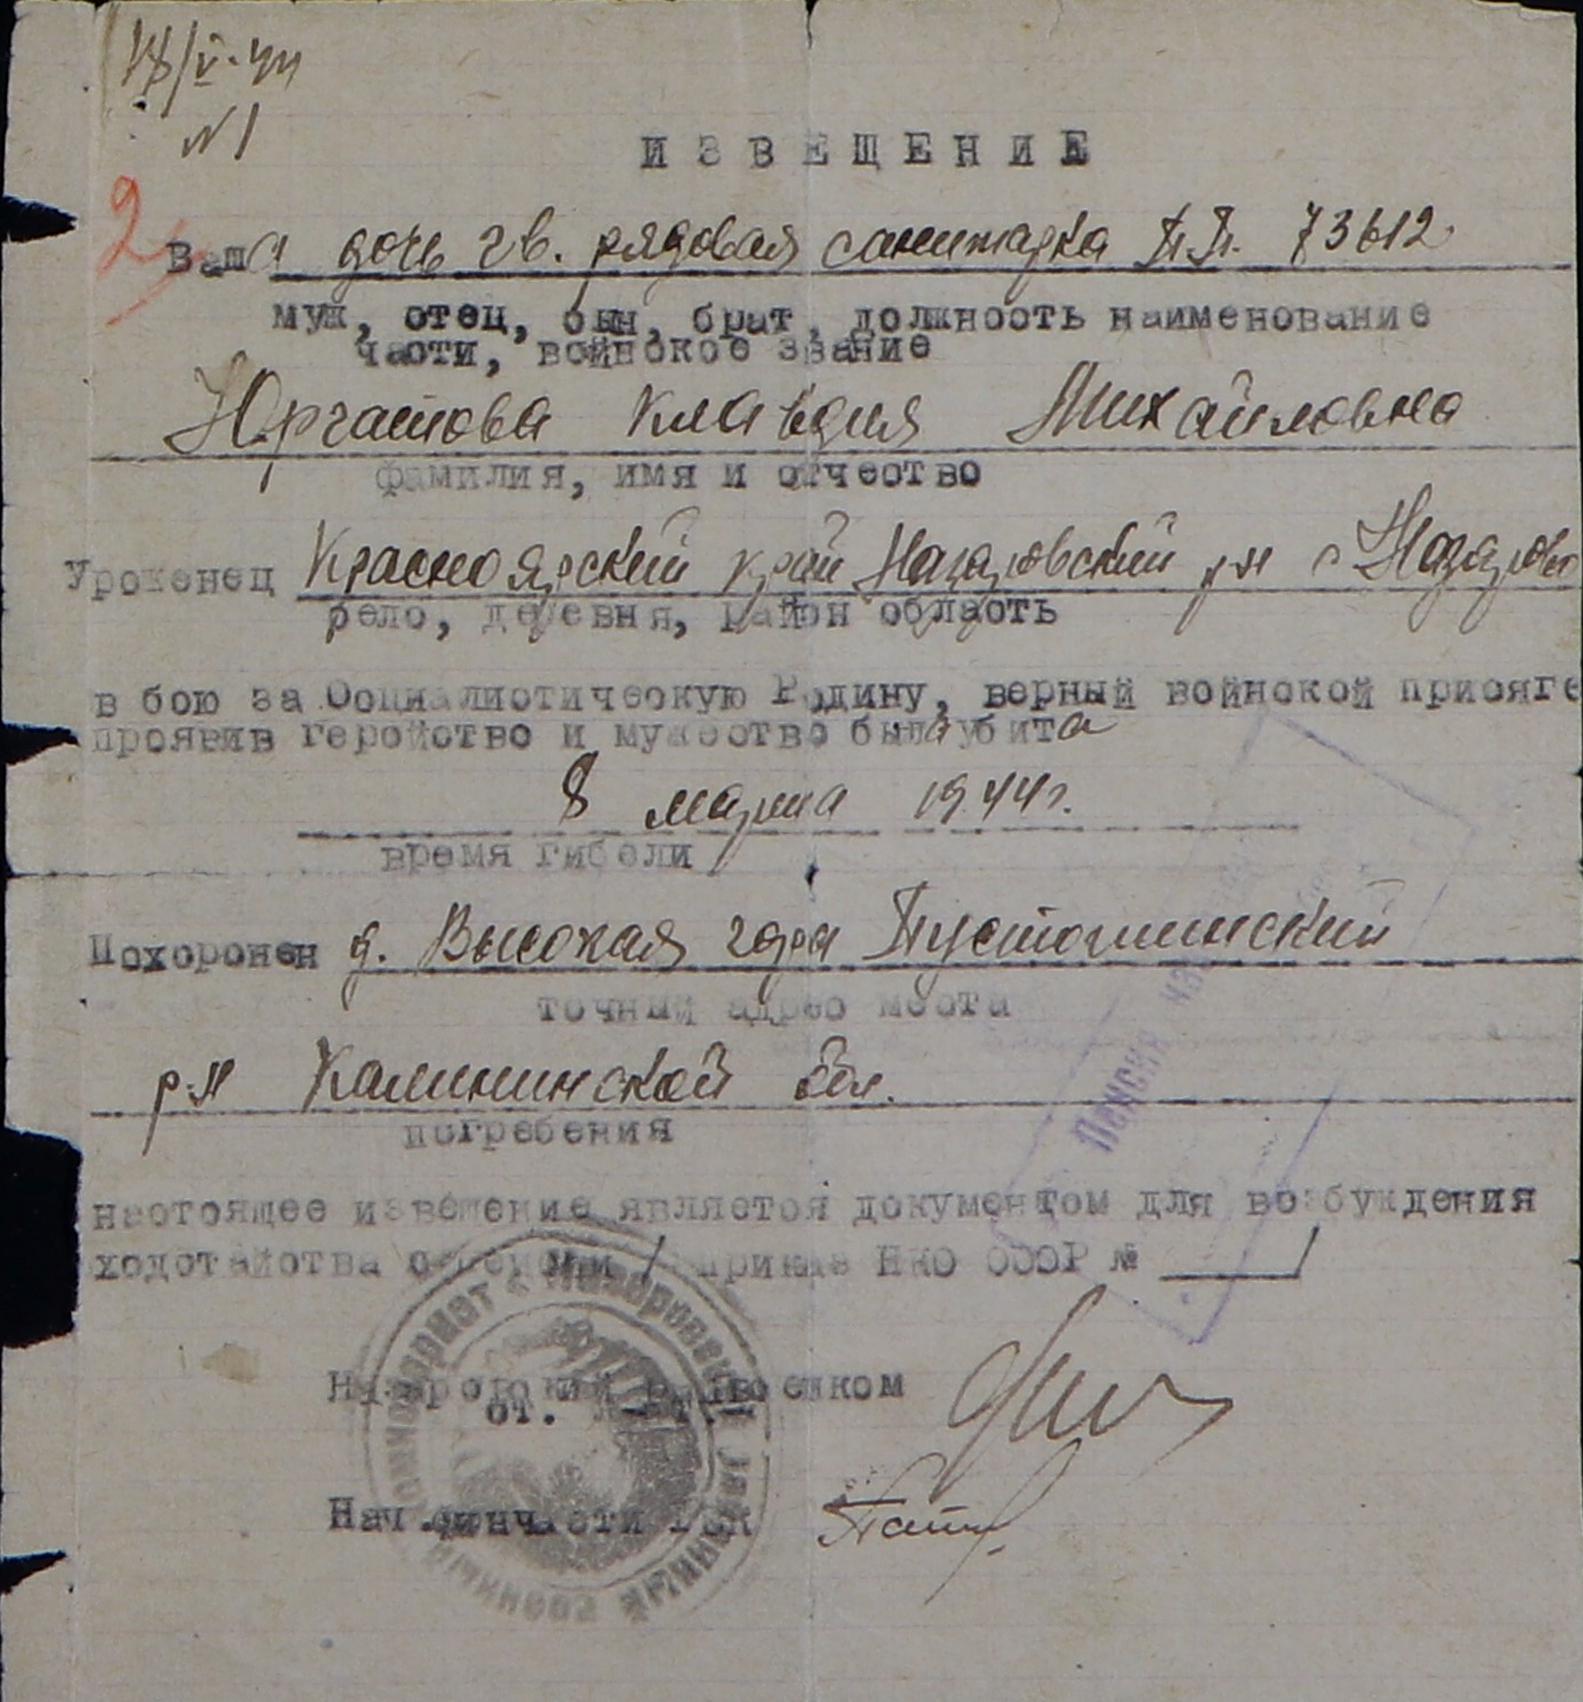 18/V-44
N 1
ИЗВЕЩЕНИЕ
2
Ваша дочь гв. рядовая санитарка п.п. 73612
муж, отец, сын, брат, должность наименование
части, воинское звание
Юргатова Клавдия Михайловна
фамилия, имя и отчество
Уроженец Красноярский край Назаровский р-н с Назарово
село, деревня, район область
в бою за Социалистическую Родину, верный воинской присяге
проявив геройство и мужество была убита
8 марта 1944г.
время гибели
Похоронен д. Высокая гора Пустошинский
точный адрес места
р-н Калининской обл.
погребения
настоящее извещение является документом для возбуждения
ходотайства о пенсии / приказ НКО СССР № ____/
Назаровский райвоенком
ст.
Нач.финчасти РВК